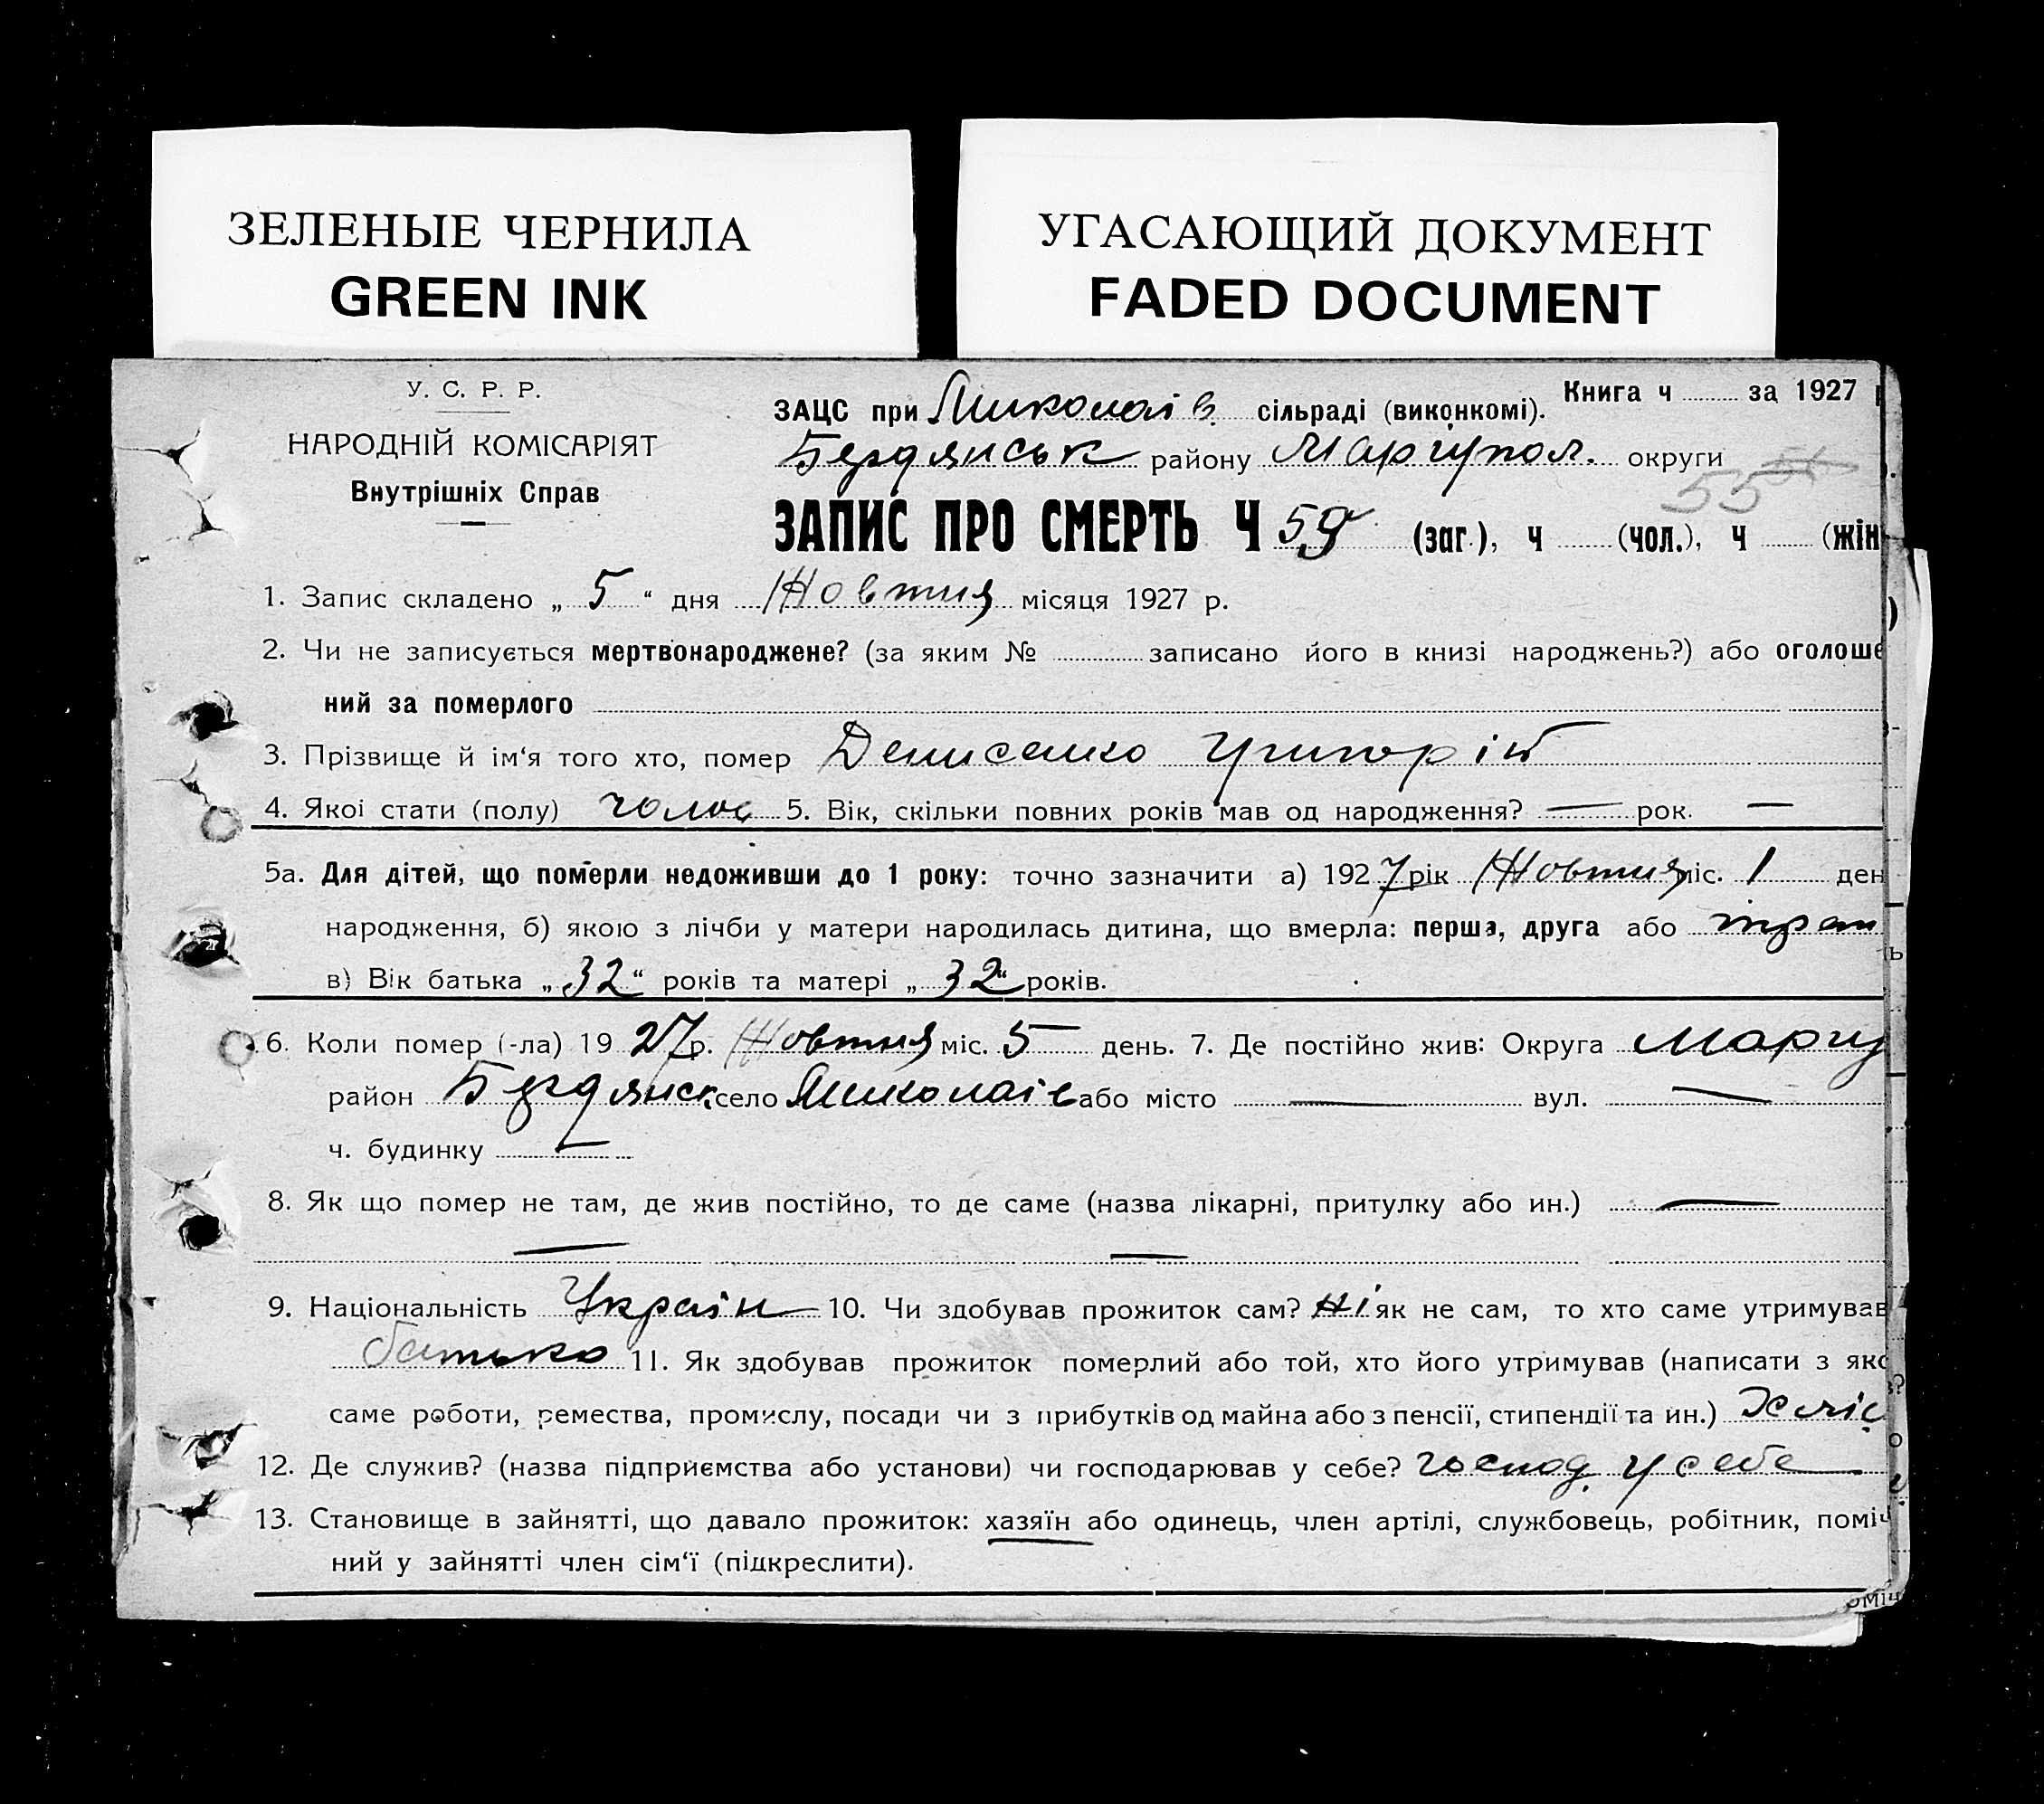 ЗЕЛЕНЫЕ ЧЕРНИЛА
GREEN INK
УГАСАЮЩИЙ ДОКУМЕНТ
FADED DOCUMENT
У. С. Р. Р.
НАРОДНІЙ КОМІСАРІЯТ
Внутрішніх Справ
Книга ч за 1927
ЗАЦС при Миколаїв сільраді (виконкомі).
Бердянськ району Маріупол. округи
55
ЗАПИС ПРО СМЕРТЬ Ч 59 (заг.), ч (чол.), ч (жін
1. Запис складено „ 5 “ дня Жовтня місяця 1927 р.
2. Чи не записується мертвонароджене? (за яким № записано його в книзі народжень?) або оголоше
ний за померлого
3. Прізвище й ім‘я того хто, помер Денисенко Григорій
4. Якої стати (полу) чолов 5. Вік, скільки повних років мав од народження? — рок. —
5а. Для дітей, що померли недоживши до 1 року: точно зазначити а) 1927 рік Жовтня міс. 1 ден
народження, б) якою з лічби у матери народилась дитина, що вмерла: перша, друга або трет
в) Вік батька „ 32 “ років та матері „ 32 “ років.
6. Коли помер (-ла) 19 27 р. Жовтня міс. 5 день. 7. Де постійно жив: Округа Маріу
район Бердянськ село Миколаїв або місто — вул. —
ч. будинку —
8. Як що помер не там, де жив постійно, то де саме (назва лікарні, притулку або ин.) —
— —
9. Національність Україн 10. Чи здобував прожиток сам? ні як не сам, то хто саме утримував
батько 11. Як здобував прожиток померлий або той, хто його утримував (написати з яко
саме роботи, ремества, промислу, посади чи з прибутків од майна або з пенсії, стипендії та ин.) Хліб
12. Де служив? (назва підприємства або установи) чи господарював у себе? господ. у себе
13. Становище в зайнятті, що давало прожиток: хазяїн або одинець, член артілі, службовець, робітник, поміч
ний у зайнятті член сім‘ї (підкреслити).